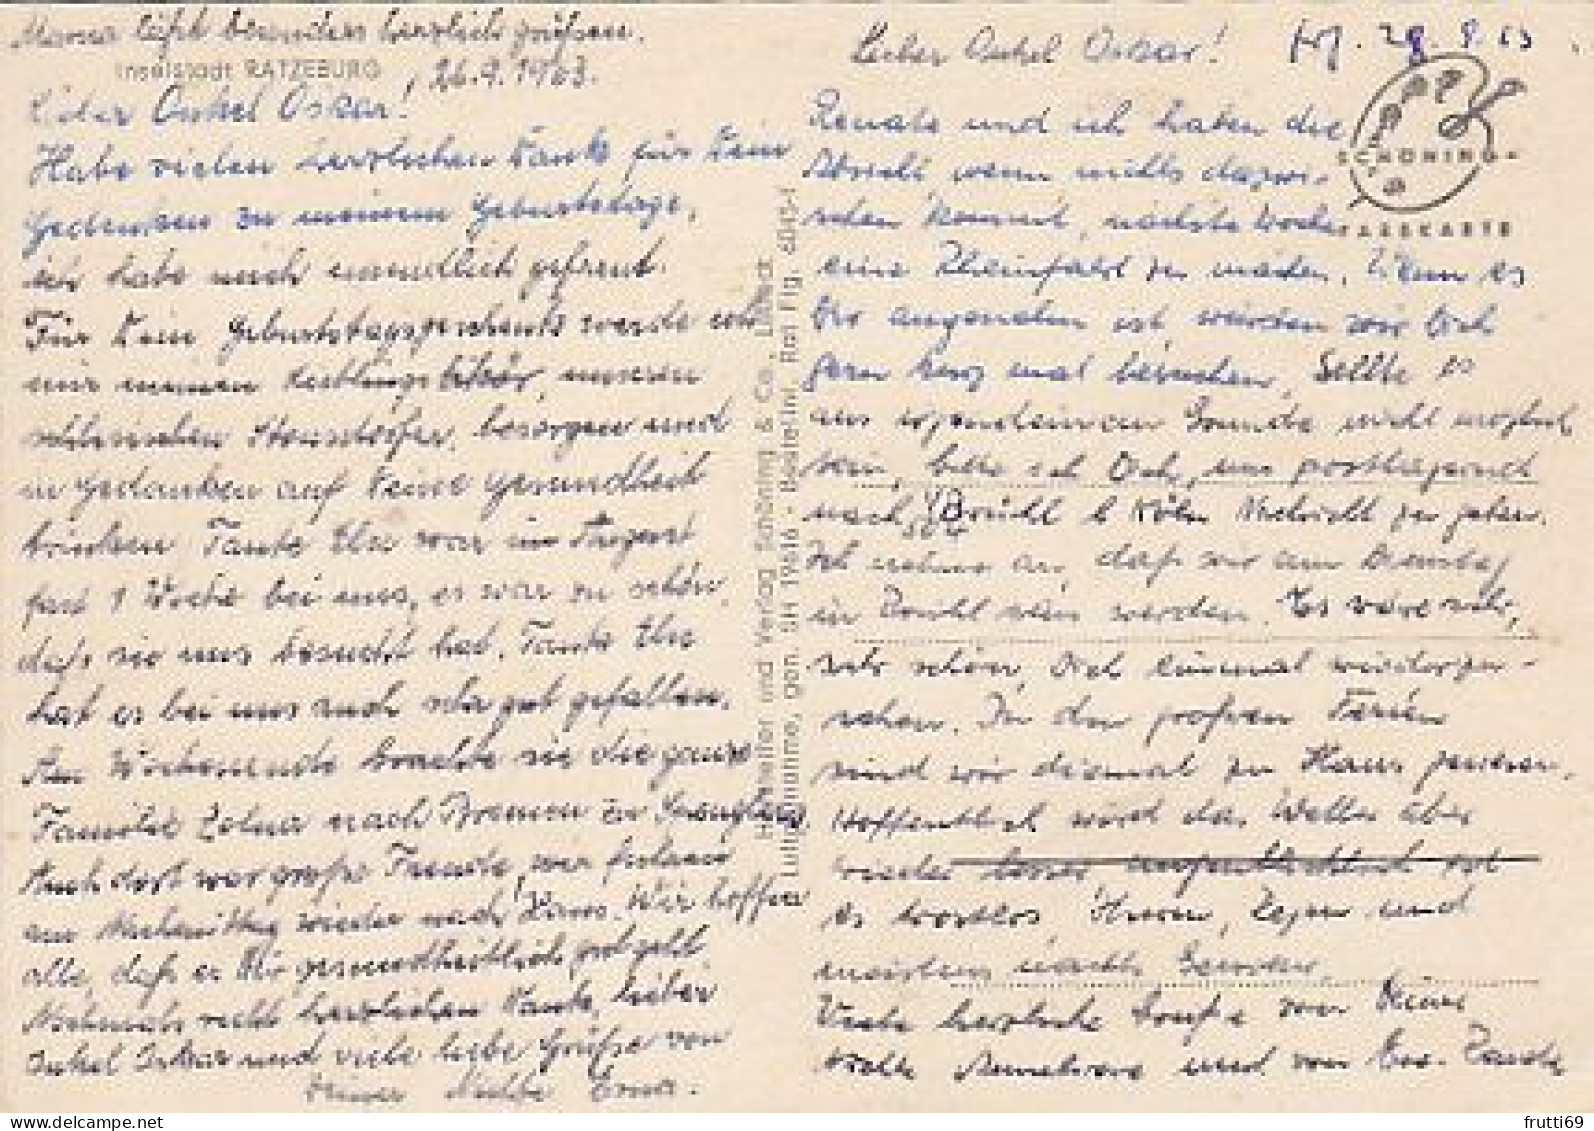 Mama läßt besonders herzlich grüßen.
Inselstadt RATZEBURG, 26.9.1963.
Lieber Onkel Oskar!
Habe vielen herzlichen Dank für Dein
Gedenken zu meinem Geburtstage,
ich habe mich unendlich gefreut.
Für Dein Geburtstagsgeschenk werde ich
mir meinen Lieblingslikör, unseren
schlesischen Stonsdorfer, besorgen und
in Gedanken auf Deine Gesundheit
trinken. Tante Else war im August
fast 1 Woche bei uns, es war zu schön,
daß sie uns besucht hat. Tante Else
hat es bei uns auch sehr gut gefallen.
Am Wochenende brachte sie die ganze
Familie nach Bremen zu
Auch dort war große Freude, wir fuhren
am Nachmittag wieder nach Haus. Wir hoffen
alle, daß es Dir gesundheitlich gut geht
Nochmals recht herzlichen Dank, lieber
Onkel Oskar und viele liebe Grüße von
Deiner Nichte Erna.
Hersteller und Verlag Schöning & Co., Lübeck
Luftaufnahme, gen. SH 19616 - Beustelnr. Rat Flg. 6045-1
Lieber Onkel Oskar! 28.9.63
Renate und ich haben die
Absicht, wenn nichts dazwi-
schen kommt, nächste Woche
eine Rheinfahrt zu machen. Wenn es
Dir angenehm ist, würden wir Dich
gern kurz mal besuchen. Sollte es
aus irgendeinem Grunde nicht möglich
sein, bitte ich Dich, uns postlagernd
nach Brühl b Köln Nachricht zu geben.
Ich nehme an, daß wir am Dienstag
in Brühl sein werden. Es wäre sehr,
sehr schön, Dich einmal wiederzu-
sehen. In den großen Ferien
sind wir diesmal zu Haus gewesen.
Hoffentlich wird das Wetter aber
wieder besser augenblicklich ist
es trostlos, Sturm, Regen und
nachts
Viele herzliche Grüße von Deiner
Nichte Annelore und von
SCHÖNING-
FARBKARTE
frutti69